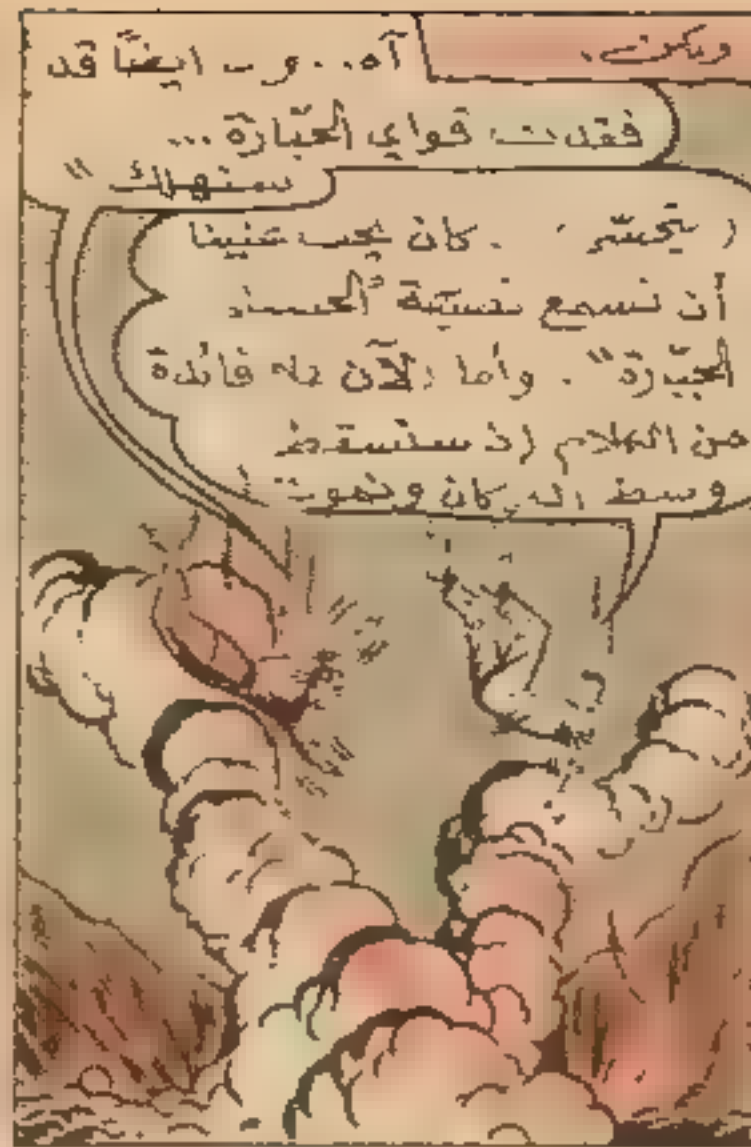 ولكن،
آه... و أيضًا قد
فقدت قواي الجبّارة...
سنهلك!!
كان يجب علينا
أن نسمع نصيحة
الجبّارة". وأما الآن فائدة
من الكلام إذ سنسقط
وسط البركان ونموت!